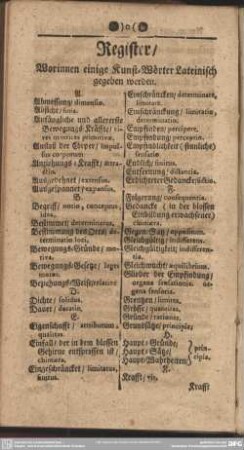 Register/
Worinnen einige Kunst-Wörter Lateinisch
gegeben werden.
A.
Abmessung/ dimensio.
Absicht/ finis.
Anfängliche und allererste
Bewegungs Kräffte/ vires
Anstoß der Cörper/ impulsus
corporum
Anziehungs-Krafft/
Ausgedehnet/ extensum.
Ausgespannet/ expansum.
B.
Begriff/ notio, conceptus,
idea.
Bestimmet/ determinatum.
Bestimmung des Orts/ determinatio
loci.
Bewegungs-Gründe/ motiva.
Bewegungs-Gesetze/ leges
motus.
Beziehungs-Weise/
D.
Dichte/ solidus.
Dauer/ duratio.
E.
Eigenschafft/ attributum,
qualitas.
Einfall/ der in dem blossen
Gehirne entsprossen ist/
Eingeschräncket/ limitatus,
finitus.
Einschräncken/ determinare,
limitare.
Einschränckung/ limitatio,
determinatio.
Empfinden/ percipere.
Empfindung/ perceptio.
Empfindlichkeit (sinnliche)
sensatio
Endlich/ finitum.
Entfernung/ distantia.
Erdichteter Gedancke/ fictio.
F.
Folgerung/ consequentia.
G.
Gedancke (in der blossen
Einbildung erwachsener)
Gegen-Satz/ oppositum.
Gleichgültig/ indifferens.
Gleichgültigkeit/ indifferentia.
Gleichwucht/ aequilibrium.
Glieder der Empfindung/
organa sensationis,
Grentzen/ limites.
Grösse/ quantitas.
Gründe/ rationes.
Grundsätze/ principia;
H.
Haupt-Gründe/
Haupt-Sätze/
Haupt-Wahrheiten/
principia.
K.
Krafft/ vis.
Krafft